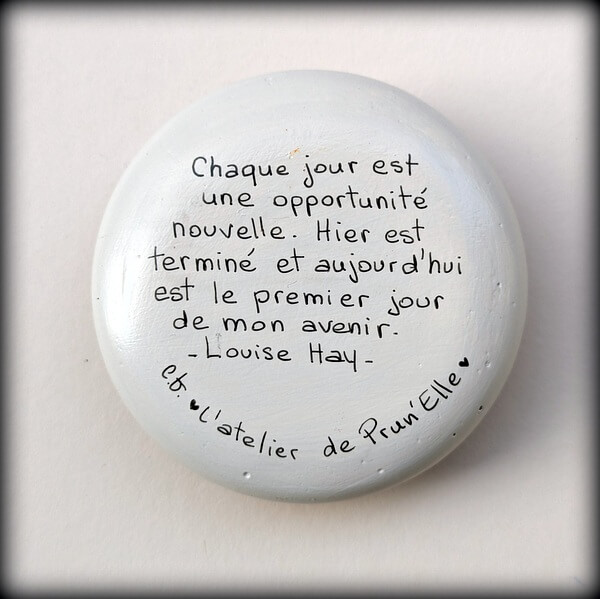 Chaque jour est
une opportunité
nouvelle. Hier est
terminé et aujourd'hui
est le premier jour
de mon avenir.
- Louise Hay -
c.b. ♥ L'atelier de Prun'Elle ♥